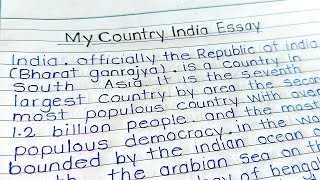 My Country India Essay
India. officially the Republic of india
(Bharat ganrajya). is a country in
South Asia It is the seventh
largest Country by area the secon
most populous country with over
1.2 billion people. and the most
populous democracy. in the wo
bounded by the indian ocean o
the arabian sea on th
of bengal